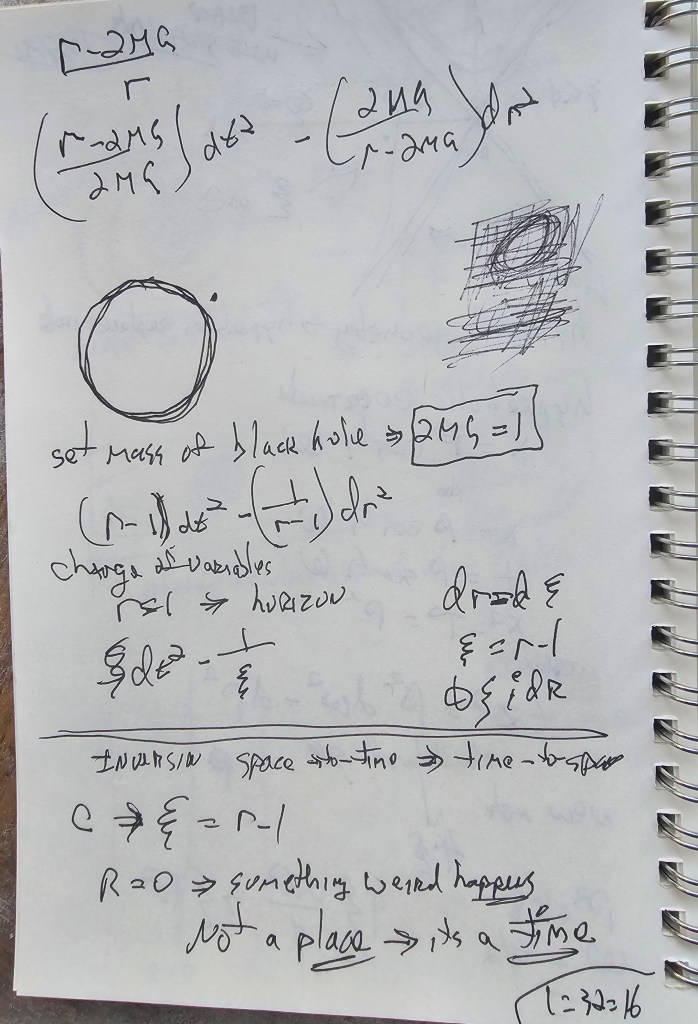 r-2MG
r
(r-2MG / 2MG) dt² - (2MG / r-2MG) dr²
set mass of black hole ⇒ 2MG = 1
(r-1) dt² - (1 / r-1) dr²
change of variables
r=1 ⇒ horizon
dr=dξ
ξ = r-1
ξdt² - 1/ξ
space-to-time ⇒ time-to-space
C ⇒ ξ = r-1
R=0 ⇒ something weird happens
Not a place → its a time